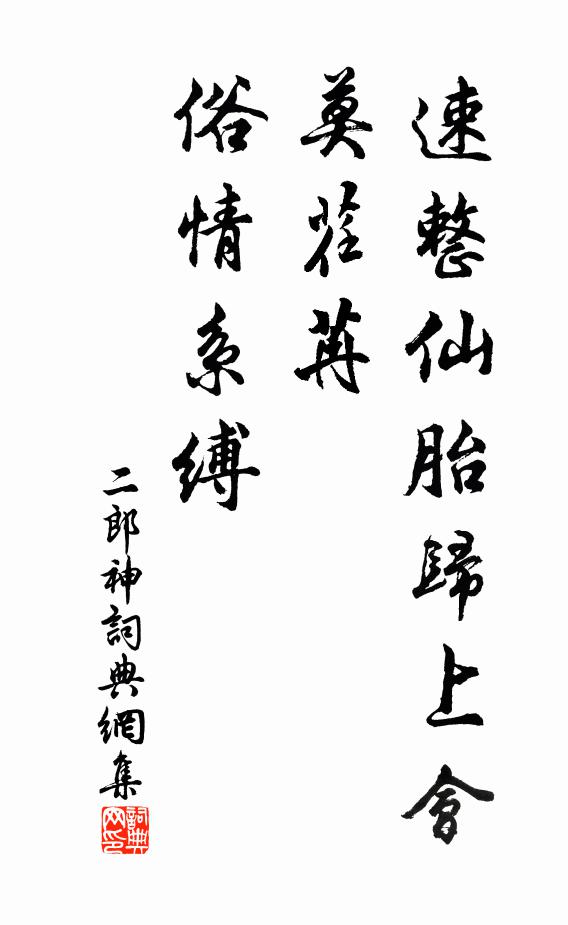 速整仙胎歸上會
莫荏苒
俗情系縛
二郎神詞典網集
詞典网印